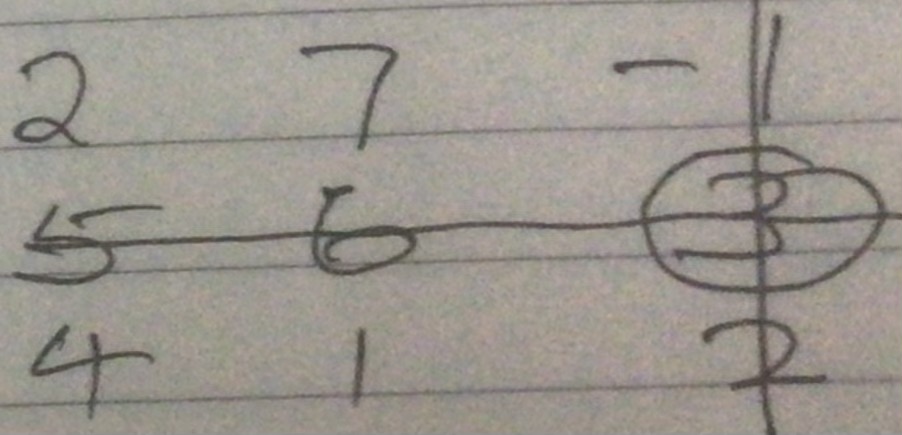 2 7 -1
5 6 3
4 1 2